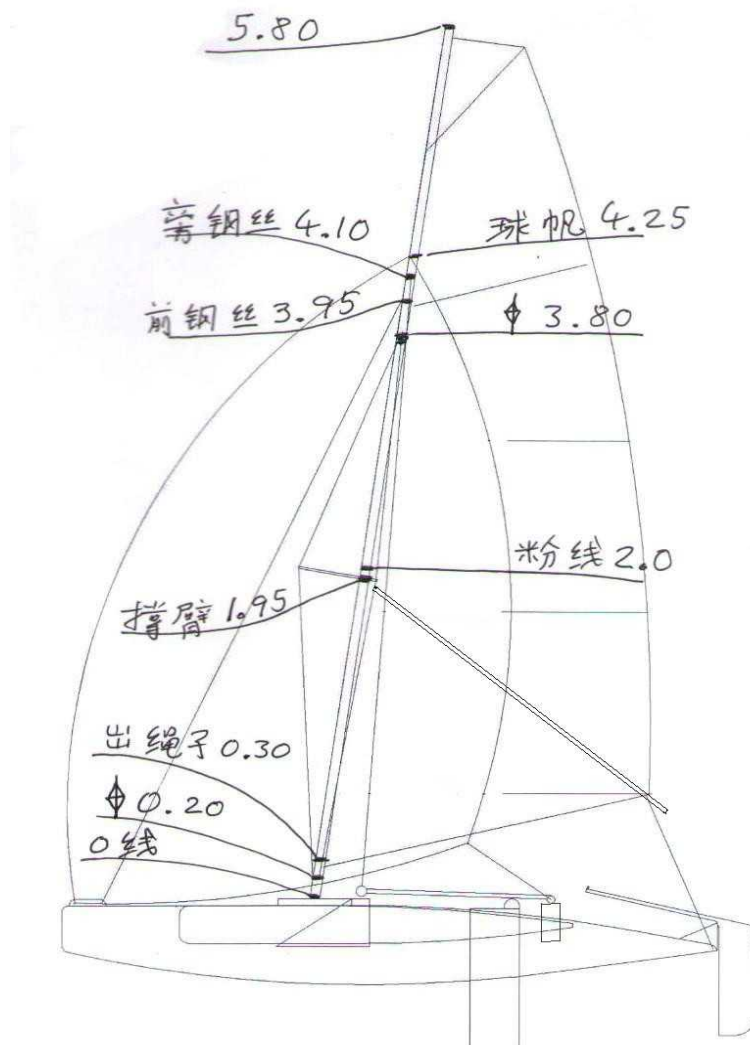 5.80
旁钢丝 4.10
球帆 4.25
前钢丝 3.95
⌽ 3.80
粉线 2.0
撑臂 1.95
出绳子 0.30
⌽ 0.20
0线